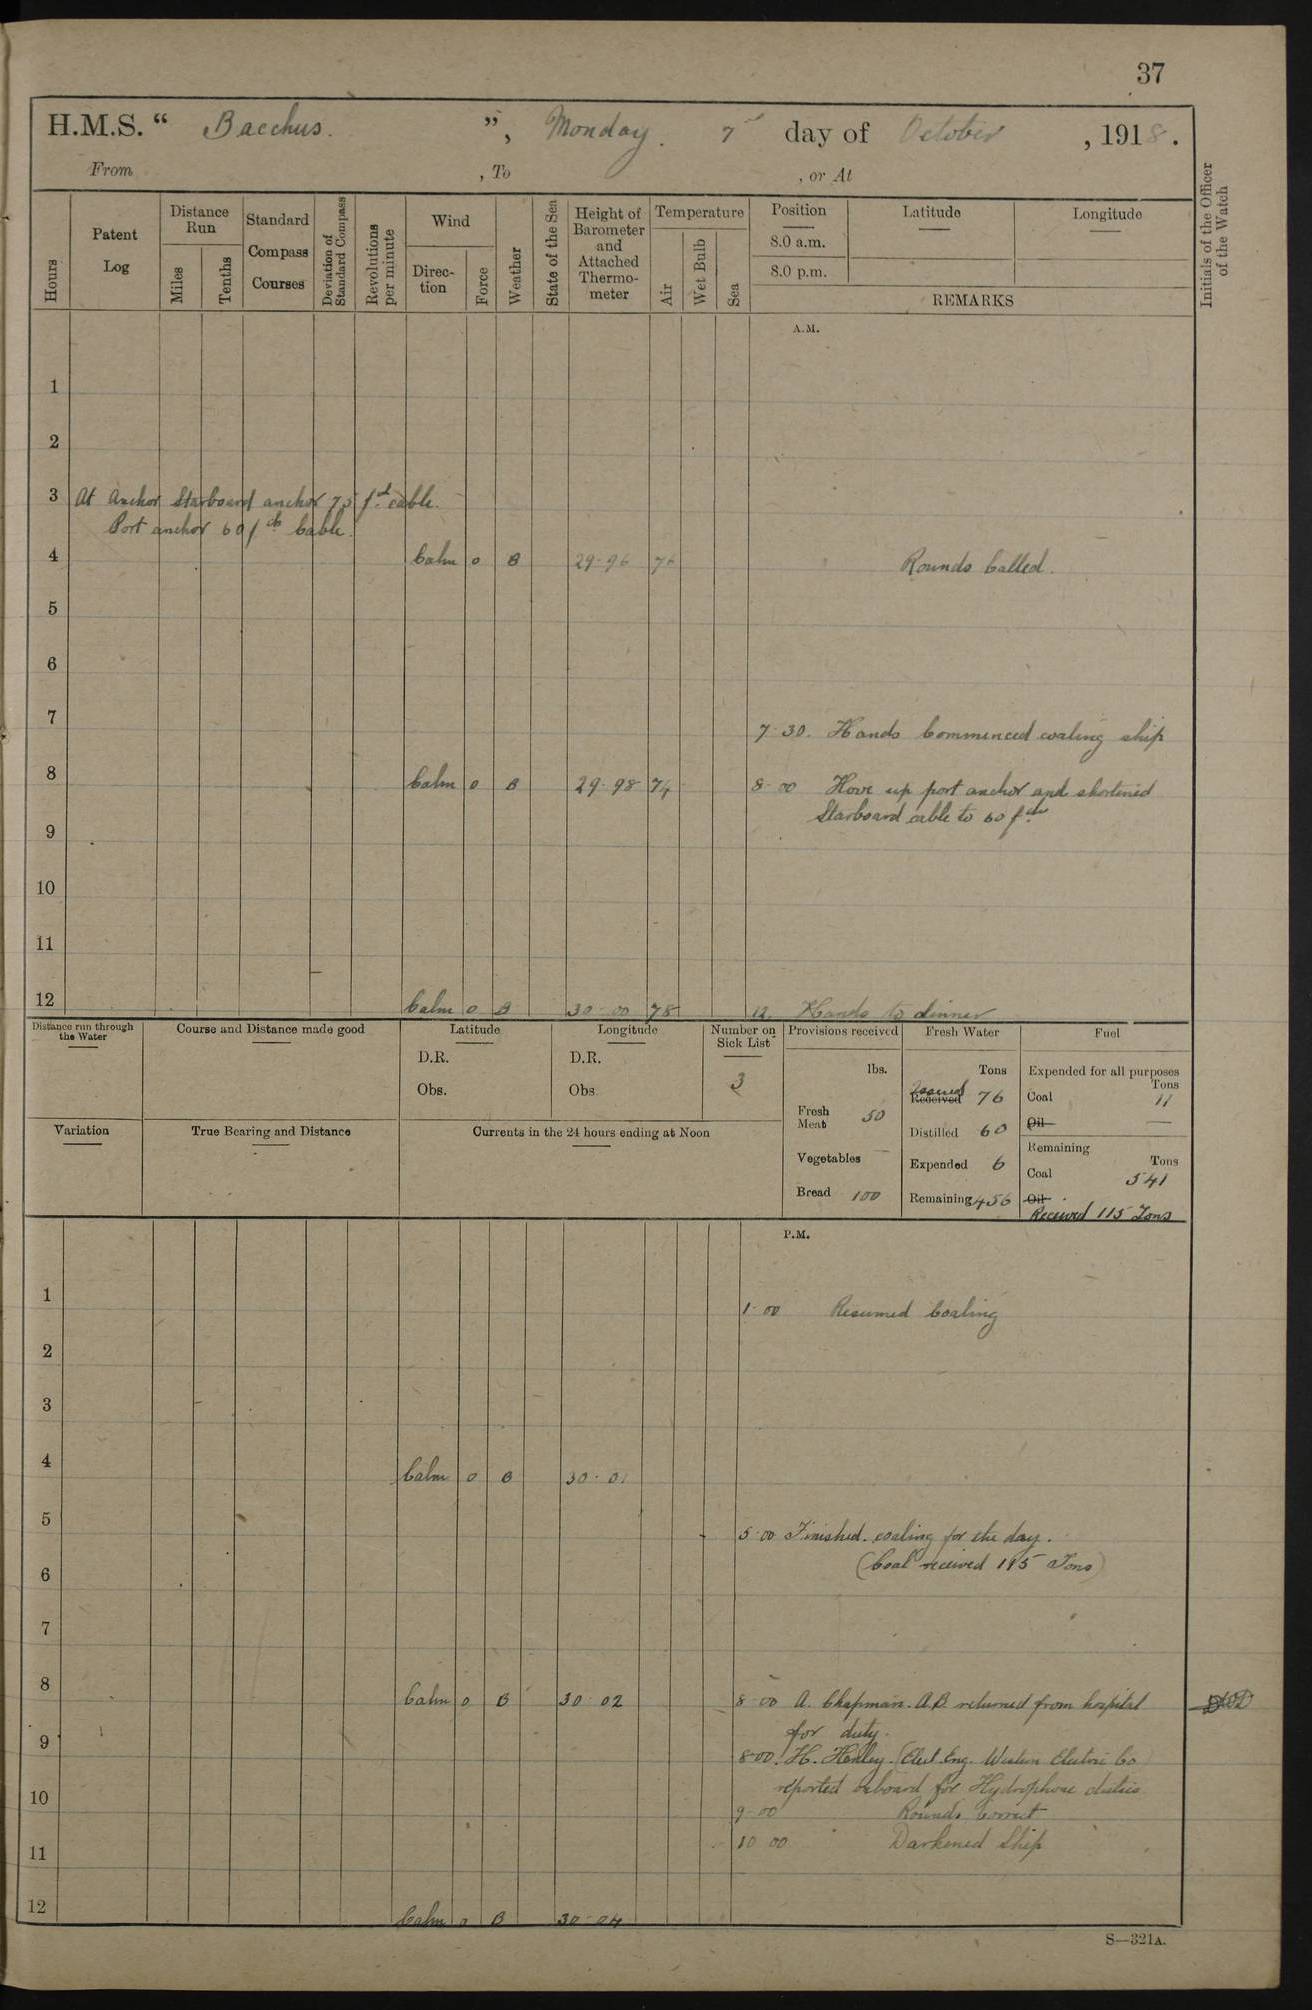 37
H.M.S. “ Bacchus. ”, Monday. 7th day of October, 1918.
From , To , or At
Hours
Patent Log
Distance Run
Miles
Tenths
Standard Compass Courses
Deviation of Standard Compass
Revolutions per minute
Wind
Direction
Force
Weather
State of the Sea
Height of Barometer and Attached Thermometer
Temperature
Air
Wet Bulb
Sea
Position
8.0 a.m.
8.0 p.m.
Latitude
Longitude
REMARKS
Initials of the Officer of the Watch
A.M.
1
2
3 At Anchor Starboard anchor 75 fds cable.
Port anchor 60 fds Cable.
4 Calm 0 B 29·96 Rounds Called.
5
6
7
7·30. Hands Commenced coaling ship
8 Calm 0 B 29·98 74 8·00 Hove up port anchor and shortened
Starboard cable to 60 fds
9
10
11
12 Calm 0 B 30·00 78 12 Hands to dinner
Distance run through the Water
Course and Distance made good
Latitude
D.R.
Obs.
Longitude
D.R.
Obs.
Number on Sick List
3
Provisions received
lbs.
Fresh Meat 50
Vegetables —
Bread 100
Fresh Water
Tons
Issued
Received 76
Distilled 60
Expended 6
Remaining 456
Fuel
Expended for all purposes
Tons
Coal 11
Oil —
Remaining
Tons
Coal 541
Oil
Received 115 Tons
Variation
True Bearing and Distance
Currents in the 24 hours ending at Noon
P.M.
1
1·00 Resumed Coaling
2
3
4 Calm 0 B 30·01
5
5·00 Finished coaling for the day.
(Coal received 115 Tons)
6
7
8 Calm 0 B 30·02 8·00 A. Chapman. A.B. returned from hospital
for duty.
9
8·00. H. Henley. (Elect. Eng. Western Electric Co)
reported onboard for Hydrophone duties
10
9·00 Rounds Correct
10·00 Darkened Ship
11
12 Calm 0 B 30·04
S—321A.